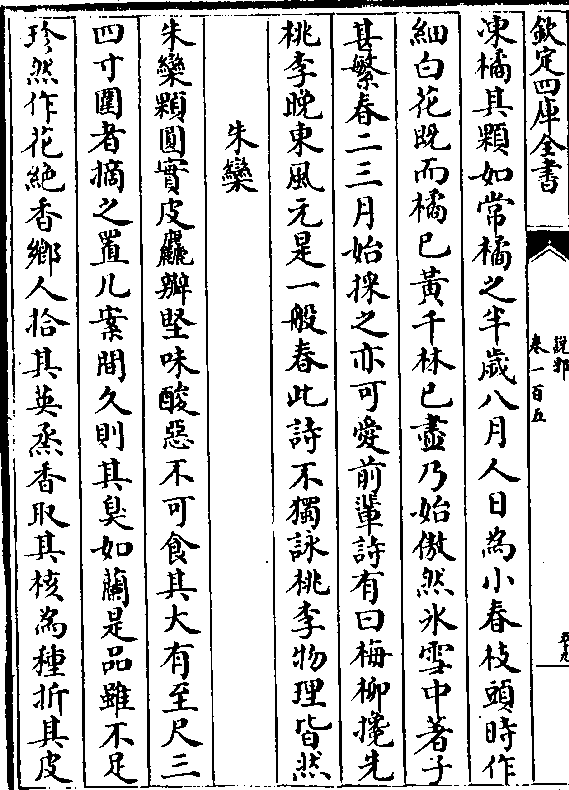 欽定四庫全書
說郛
卷一百五
凍橘其顆如常橘之半歲八月人日為小春枝頭時作
細白花既而橘已黃千林已盡乃始傲然氷雪中著子
甚繁春二三月始採之亦可愛前輩詩有曰梅柳攙先
桃李晚東風元是一般春此詩不獨詠桃李物理皆然
朱欒
朱欒顆圓實皮麤瓣堅味酸惡不可食其大有至尺三
四寸圍者摘之置几案間久則其臭如蘭是品雖不足
珍然作花絶香鄉人拾其英烝香取其核為種折其皮